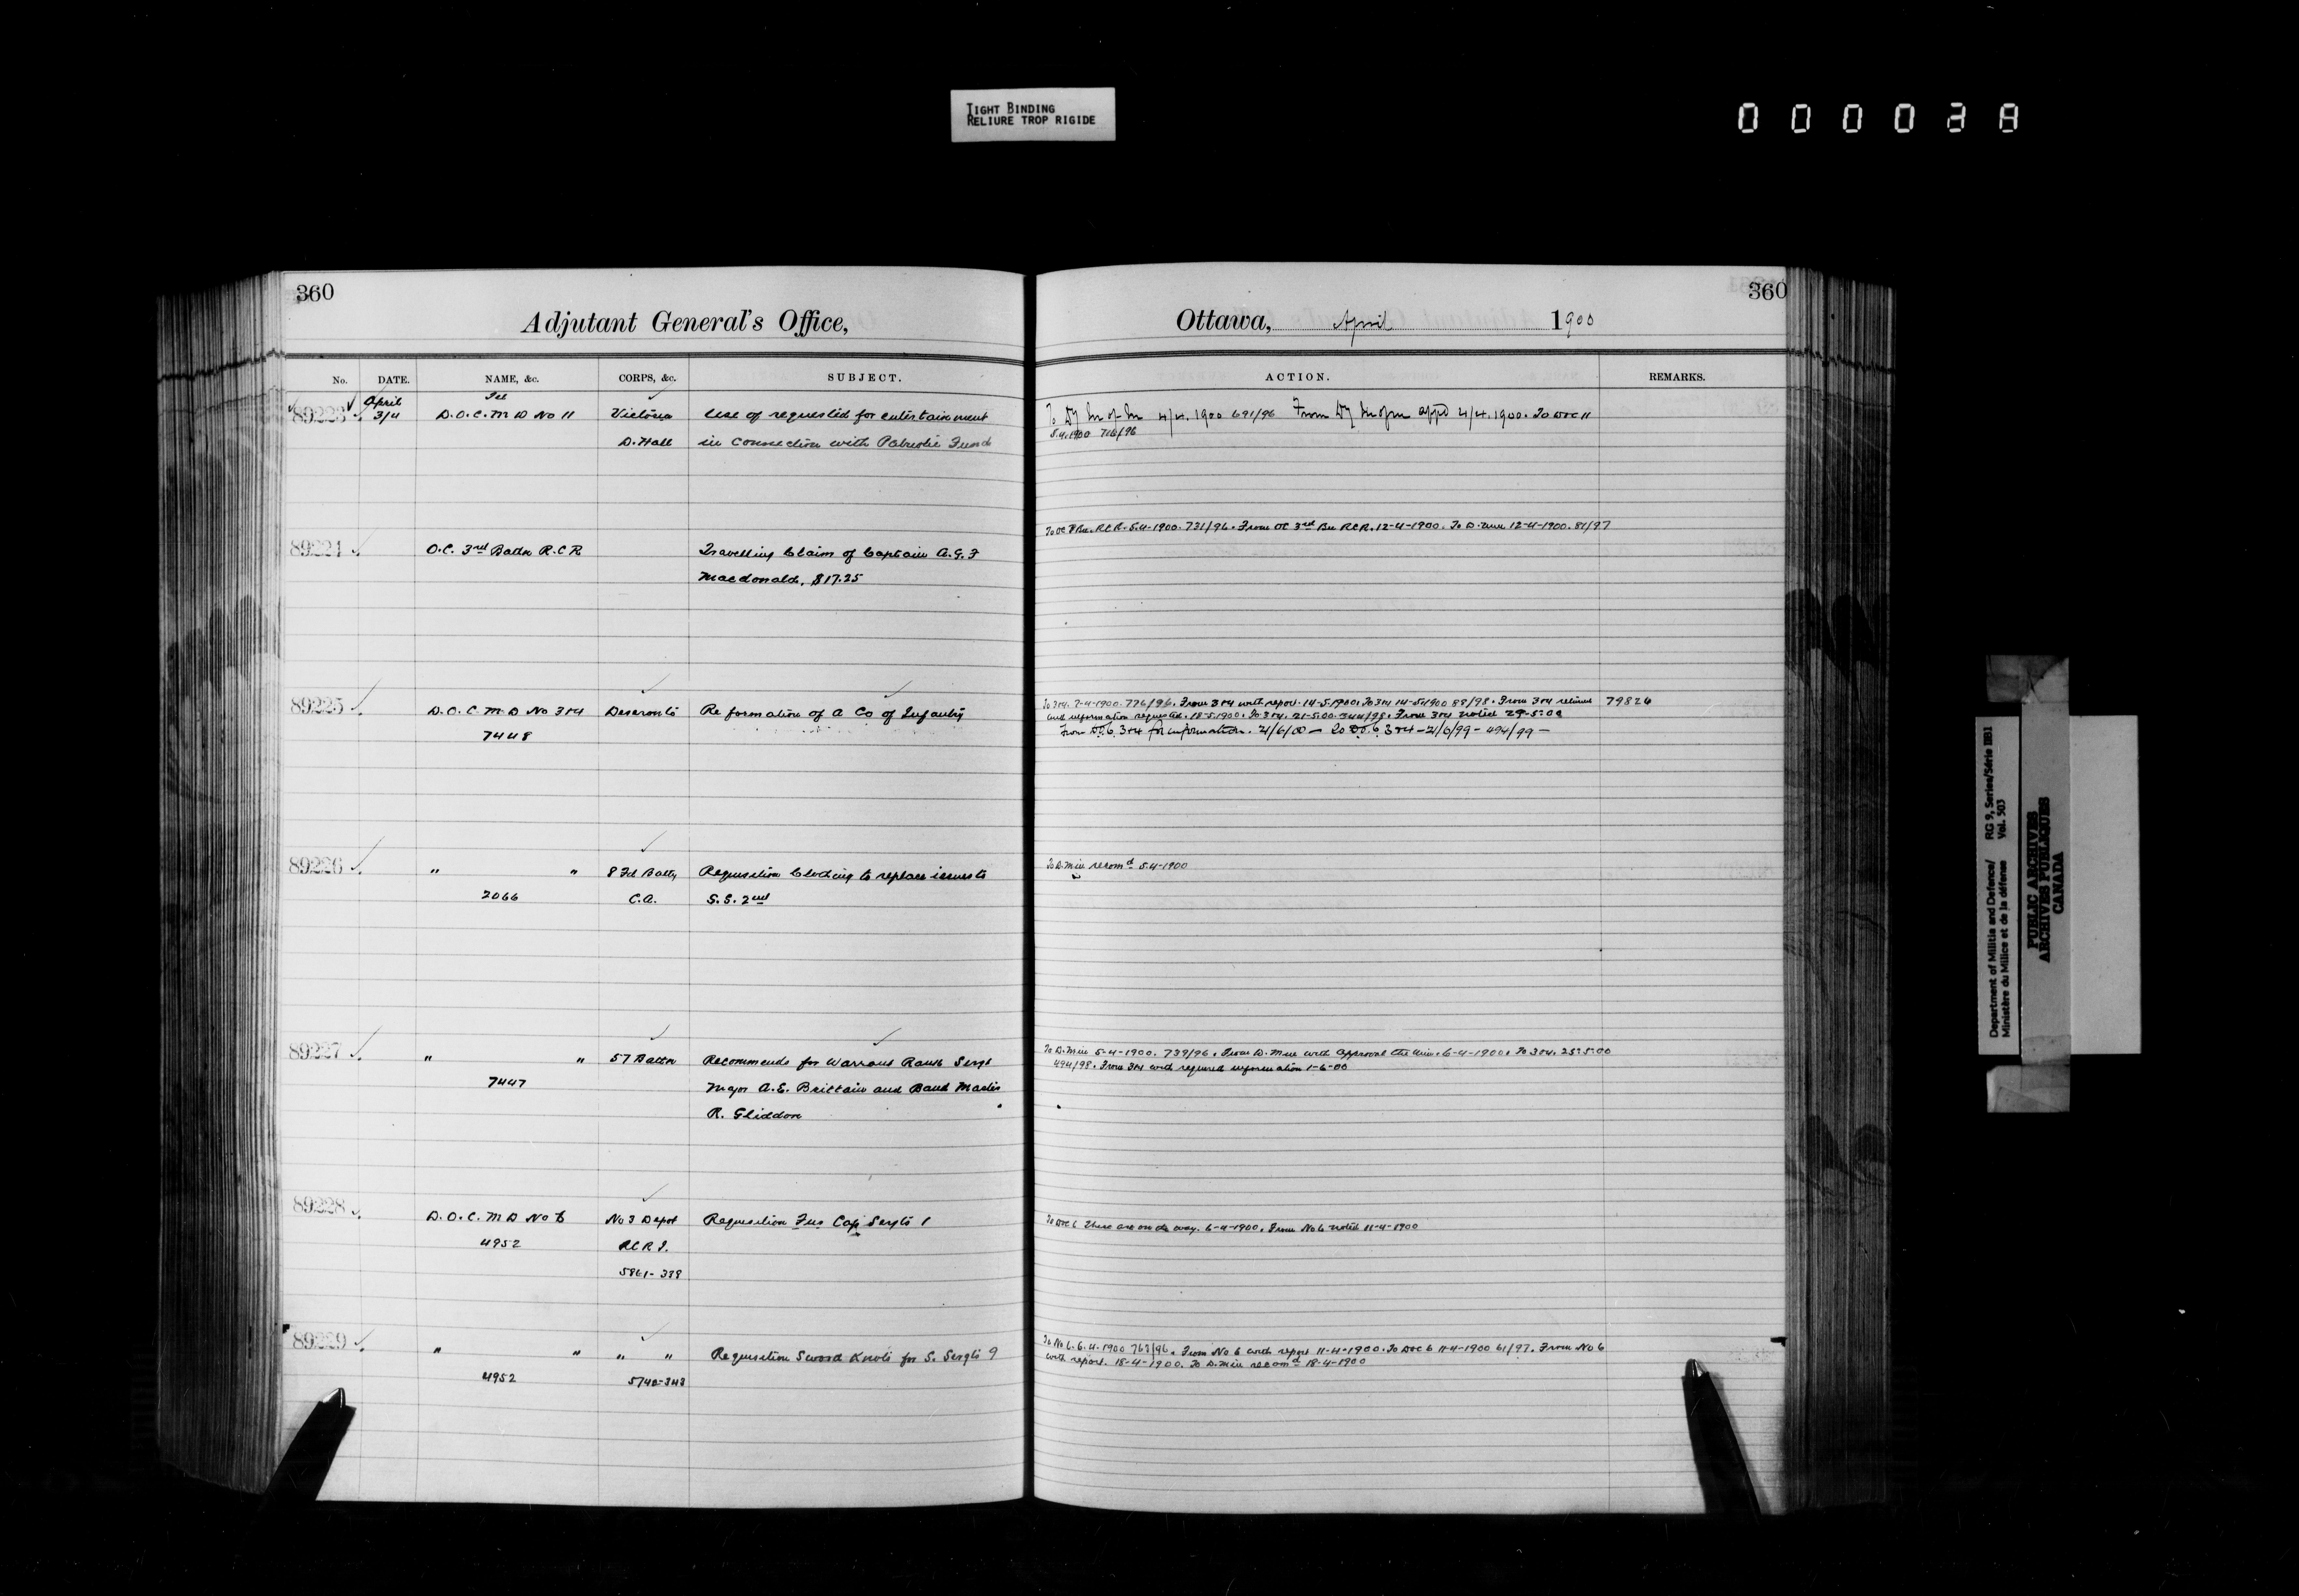 TIGHT BINDING
RELIURE TROP RIGIDE
000038
360
Adjutant General's Office,
No. DATE. NAME, &c. CORPS, &c. SUBJECT.
April Tel
89223 3/4 D.O.C. M D No 11 Victoria Use of requested for entertainment
D. Hall in connection with Patriotic Fund
89224 O.C. 3rd Battn R.C R Travelling Claim of Captain A.G.F
Macdonald, $17.25
89225 D.O.C. M.D No 3&4 Deseronto Re formation of a Co of Infantry
7448
89226 " " 8 Fd Batty Requisition Clothing to replace issues to
2066 C.A. S.S. 2nd
89227 " " 57 Battn Recommends for Warrant Rank Sergt
7447 Major A.E. Brittain and Band Master
R. Gliddon
89228 D.O.C. M D No 6 No 3 Depot Requisition Fur Cap Sergts 1
4952 RCRI.
5861-339
89229 " " " " Requisition Sword Knots for S. Sergts 9
4952 5740-343
360
Ottawa, April 1900
ACTION. REMARKS.
To Dy M of M 4/4.1900 691/96 From Dy M of M appd 4/4.1900. To DOC 11
5.4.1900 716/96
To OC 3 Bn. RCR. 5.4-1900. 731/96. From OC 3rd Bn RCR. 12-4-1900. To D. Min. 12-4-1900. 81/97
To 3&4. 7-4-1900. 776/96. From 3&4 with report. 14-5-1900. To 3&4 14-5-1900 88/98. From 3&4 returned 79826
and information requested. 18-5-1900. To 3&4. 21-5-00. 344/98. From 3&4 noted 29-5-00
From DOC 3&4 for information. 21/6/00 — To DOC 3&4 - 21/6/99 - 494/99 —
To D. Min recomd 5-4-1900
To D. Min 5-4-1900. 739/96. From D. Min with approval the Min. 6-4-1900. To 3&4. 25-5-00
494/98. From 3&4 with required information 1-6-00
To DOC 6 These are on the way. 6-4-1900. From No 6 noted 11-4-1900
To No 6. 6.4.1900 763/96. From No 6 with report 11-4-1900. To DOC 6 11-4-1900 61/97. From No 6
with report. 18-4-1900. To D. Min recomd 18-4-1900
Department of Militia and Defence/ RG 9, Series/Série IIB1
Ministère du Milice et de la défense Vol. 503
PUBLIC ARCHIVES
ARCHIVES PUBLIQUES
CANADA